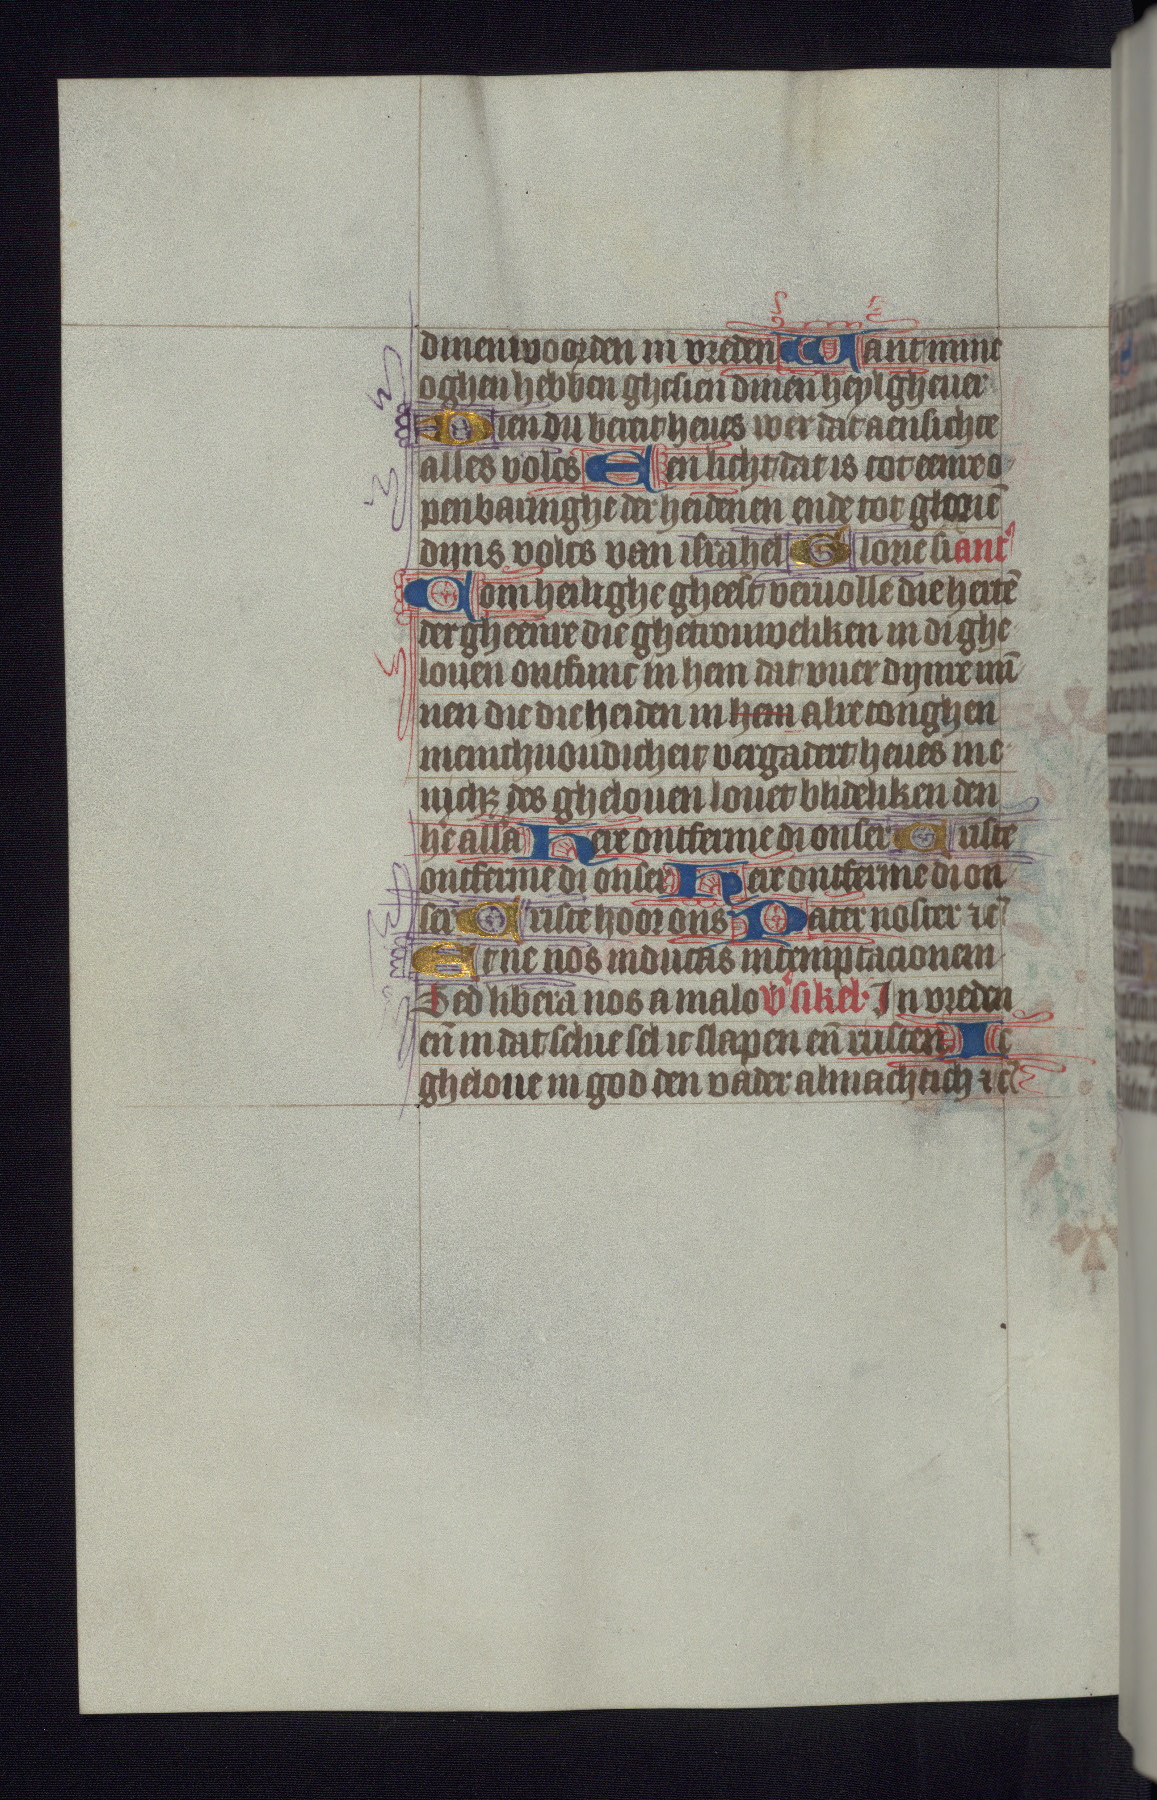 dinen woorden in vreden Want mine
oghen hebben ghesien dinen heylgheuer
Dien du bereit heues voer dat aensichte
alles volcs Een licht dat is tot eenre o
penbaringhe der heidenen ende tot gloriē
dijns volcs van israhel Glorie si ant
Com heilighe gheest veruolle die hertē
der gheenre die ghetrouweliken in di ghe
louen ontfunc in hem dat vuer dijnre mī
nen die die heiden in hem alre tonghen
menichuoudicheit vergadert heues in e
nich des ghelouen louet blideliken den
hē alla Here ontferme di onser Criste
ontferme di onser Here ontferme di on
ser Criste hoor ons Pater noster ⁊c̄
Et ne nos inducas in temptacionem
Sed libera nos a malo v'sikel· In vreden
eñ in dat selue sel ic slapen eñ rusten Ic
gheloue in god den vader almachtich ⁊c̄